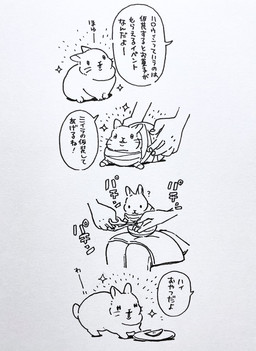 ハロウィンっていうのは
仮装するとお菓子が
もらえるイベント
なんだよー
ほゆー
ミイラの仮装して
あげるね！
?
パチン
パチン
パチン
パチン
ハイ
おやつだよ
わー